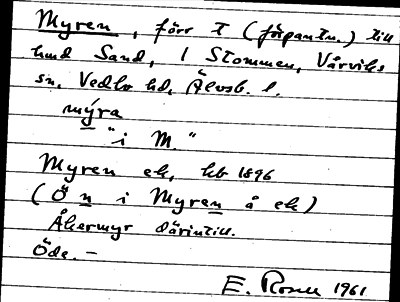 Myren, förr t (förpantn.) till
hmd Sand, 1 Stommen, Vårviks
sn, Vedbo hd, Älvsb. l.
mýra
"i M."
Myren ek, kb 1896
(Ö n i Myren å ek)
Åkermyr därintill.
Öde. –
E. Rosell 1961